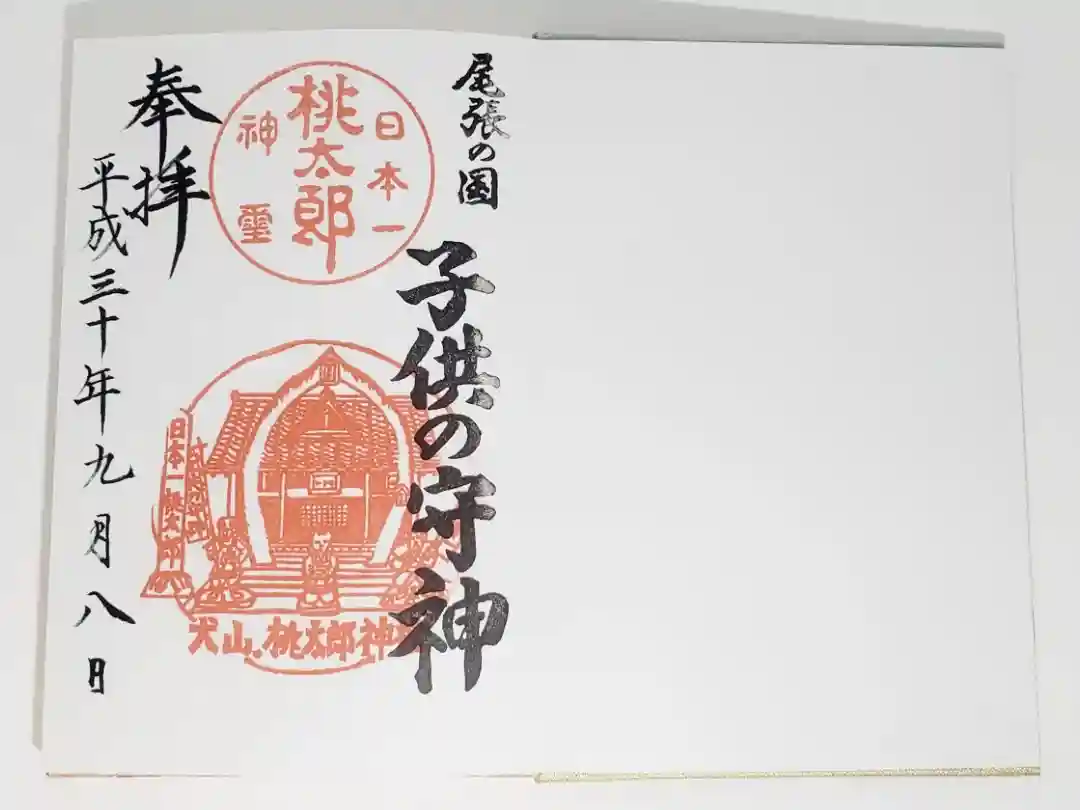 尾張の国
子供の守神
日本一
桃太郎
神霊
日本一桃太郎
犬山・桃太郎神
奉拝
平成三十年九月八日